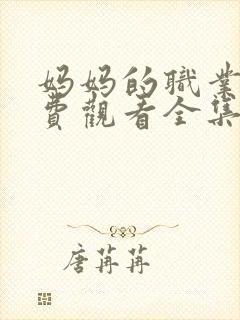 妈妈的職業
費觀看全集
唐苒苒